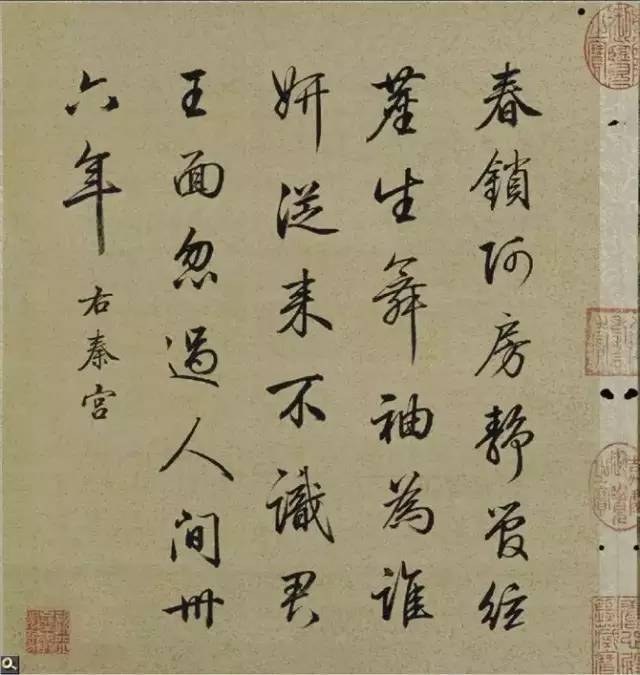 春鎖阿房靜管絃
塵生舞袖為誰
妍從来不識君
王面忽過人間卅
六年
右秦宮